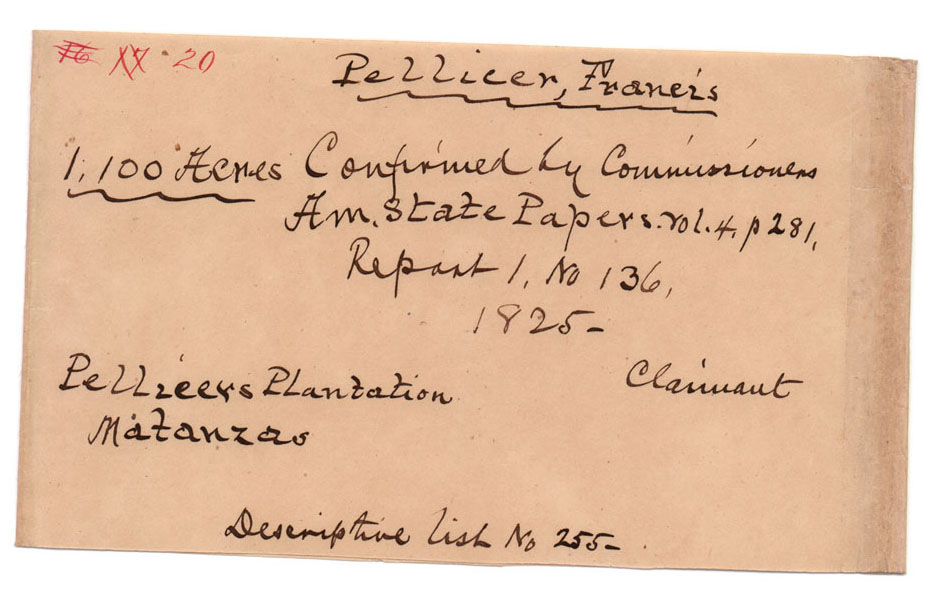 20
Pellicer, Francis
1,100 Acres Confirmed by Commissioners
Am. State Papers. vol. 4, p 281,
Report 1, No 136,
1825-
Pellicers Plantation
Claimant
Matanzas
Descriptive list No 255-